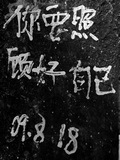 你要照
顾好自己
09.8.18